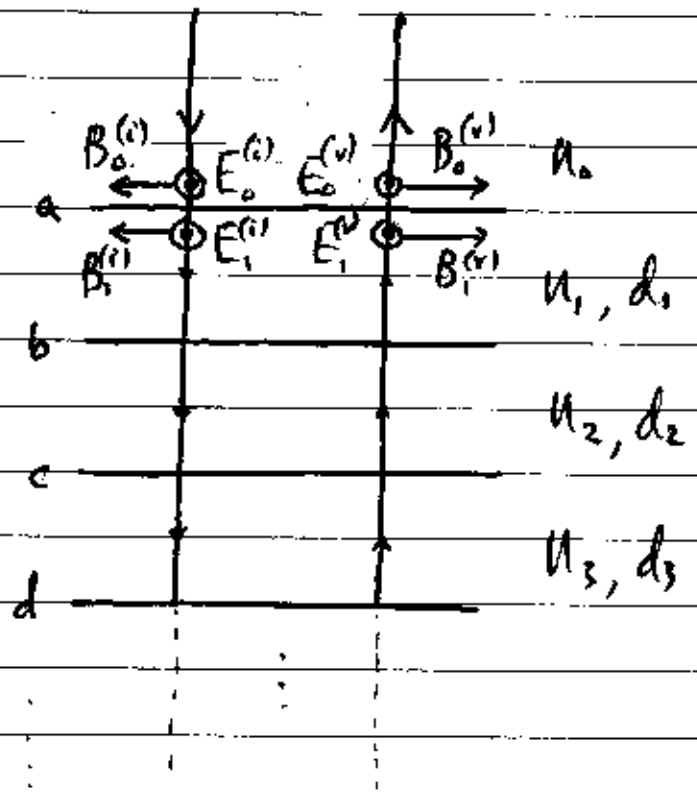 B₀⁽ⁱ⁾ E₀⁽ⁱ⁾ E₀⁽ʳ⁾ B₀⁽ʳ⁾ n₀
a
B₁⁽ⁱ⁾ E₁⁽ⁱ⁾ E₁⁽ʳ⁾ B₁⁽ʳ⁾
n₁, d₁
b
n₂, d₂
c
n₃, d₃
d